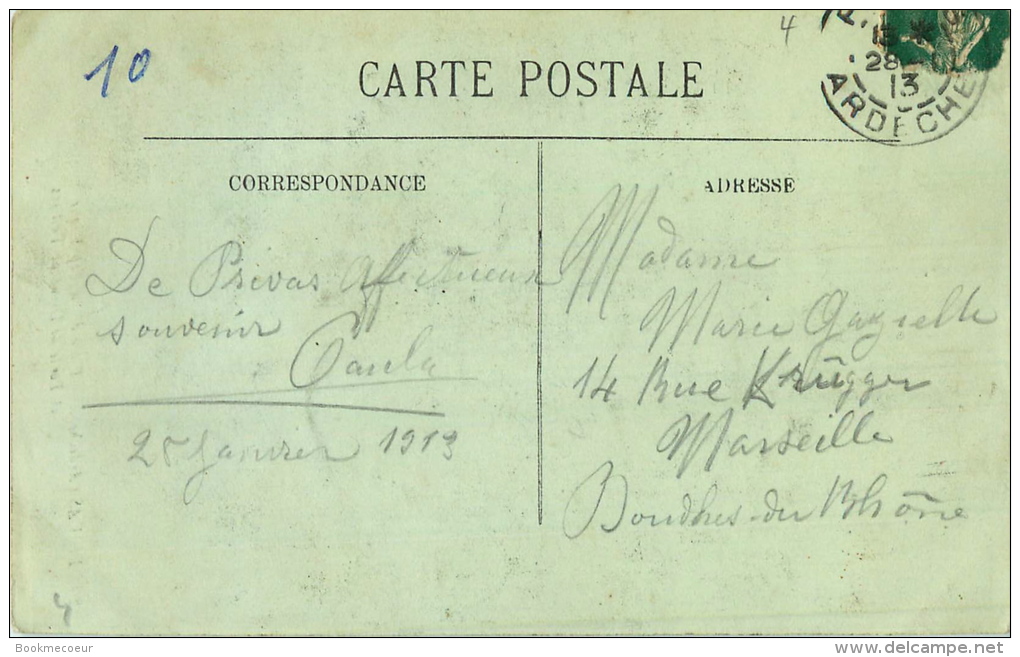 10
4
CARTE POSTALE
13 *
28
13
ARDÈCHE
CORRESPONDANCE
ADRESSE
De Privas affectueux
souvenir
Paula
25 Janvier 1913
Madame
Marie Gazielle
14 Rue Krügger
Marseille
Bouches-du Rhône
Bookmecoeur